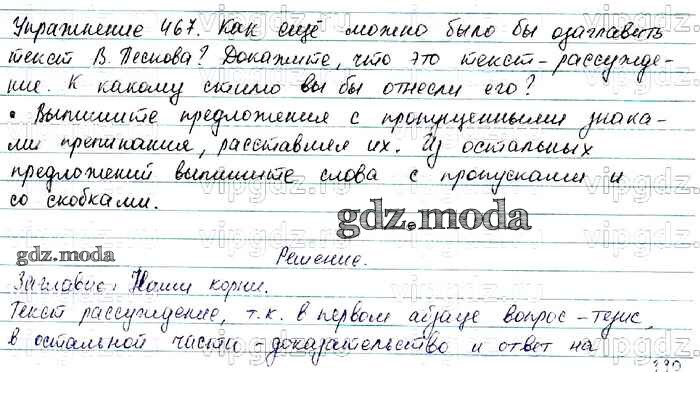 Упражнение 467. Как ещё можно было бы озаглавить
текст В. Пескова? Докажите, что это текст-рассужде-
ние. К какому стилю вы бы отнесли его?
• Выпишите предложения с пропущенными знака-
ми препинания, расставляя их. Из остальных
предложений выпишите слова с пропусками и
со скобками.
gdz.moda
gdz.moda
Решение.
Заглавие: Наши корни.
Текст рассуждение, т.к. в первом абзаце вопрос-тезис,
в остальной части - доказательство и ответ на
330